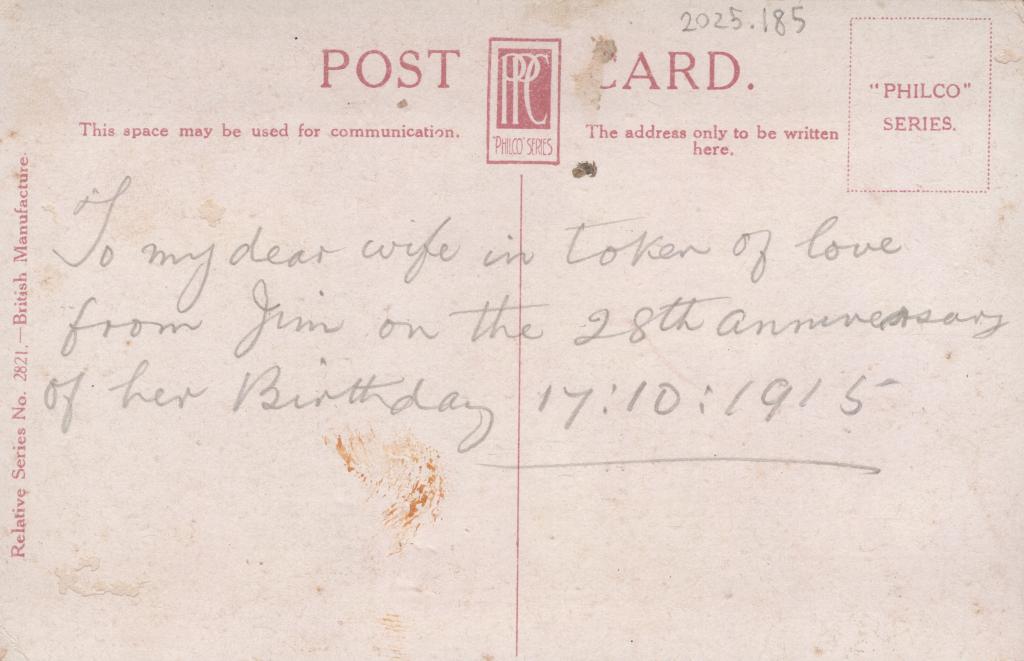 2025.185
POST CARD.
PPC
"PHILCO" SERIES
"PHILCO"
SERIES.
This space may be used for communication.
The address only to be written
here.
Relative Series No. 2821.—British Manufacture.
To my dear wife in token of love
from Jim on the 28th anniversary
of her Birthday 17:10:1915